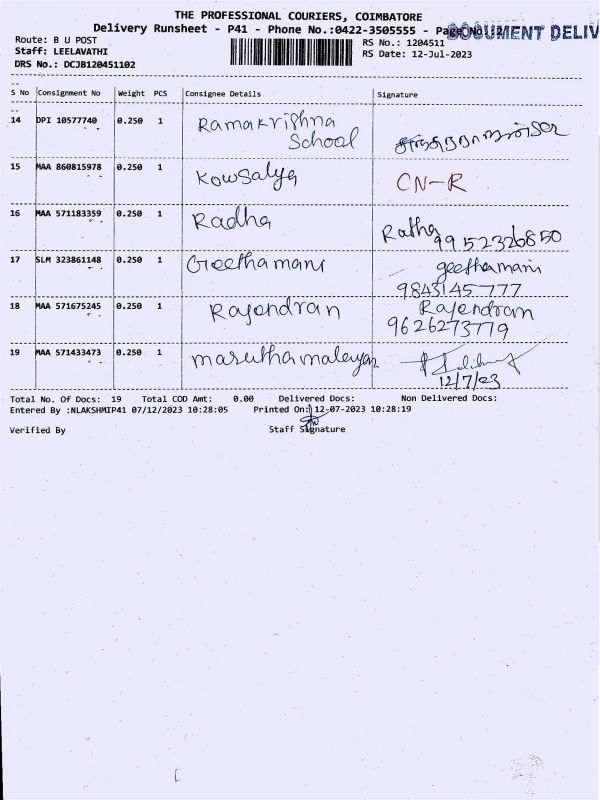 THE PROFESSIONAL COURIERS, COIMBATORE
Delivery Runsheet - P41 - Phone No.:0422-3505555 - Page No.:2
DOCUMENT DELIV
Route: B U POST
RS No.: 1204511
Staff: LEELAVATHI
RS Date: 12-Jul-2023
DRS No.: DCJB120451102
S No Consignment No Weight PCS Consignee Details Signature
14 DPI 10577740 0.250 1 Ramakrishna
School
15 MAA 860815978 0.250 1 Kowsalya CN-R
16 MAA 571183359 0.250 1 Radha Ratha
9952326850
17 SLM 323861148 0.250 1 Geethamani geethamani
9843145777
18 MAA 571675245 0.250 1 Rajendran Rajendran
9626273779
19 MAA 571433473 0.250 1 maruthamalaiyan
12/7/23
Total No. Of Docs: 19 Total COD Amt: 0.00 Delivered Docs: Non Delivered Docs:
Entered By :NLAKSHMIP41 07/12/2023 10:28:05 Printed On: 12-07-2023 10:28:19
Verified By Staff Signature